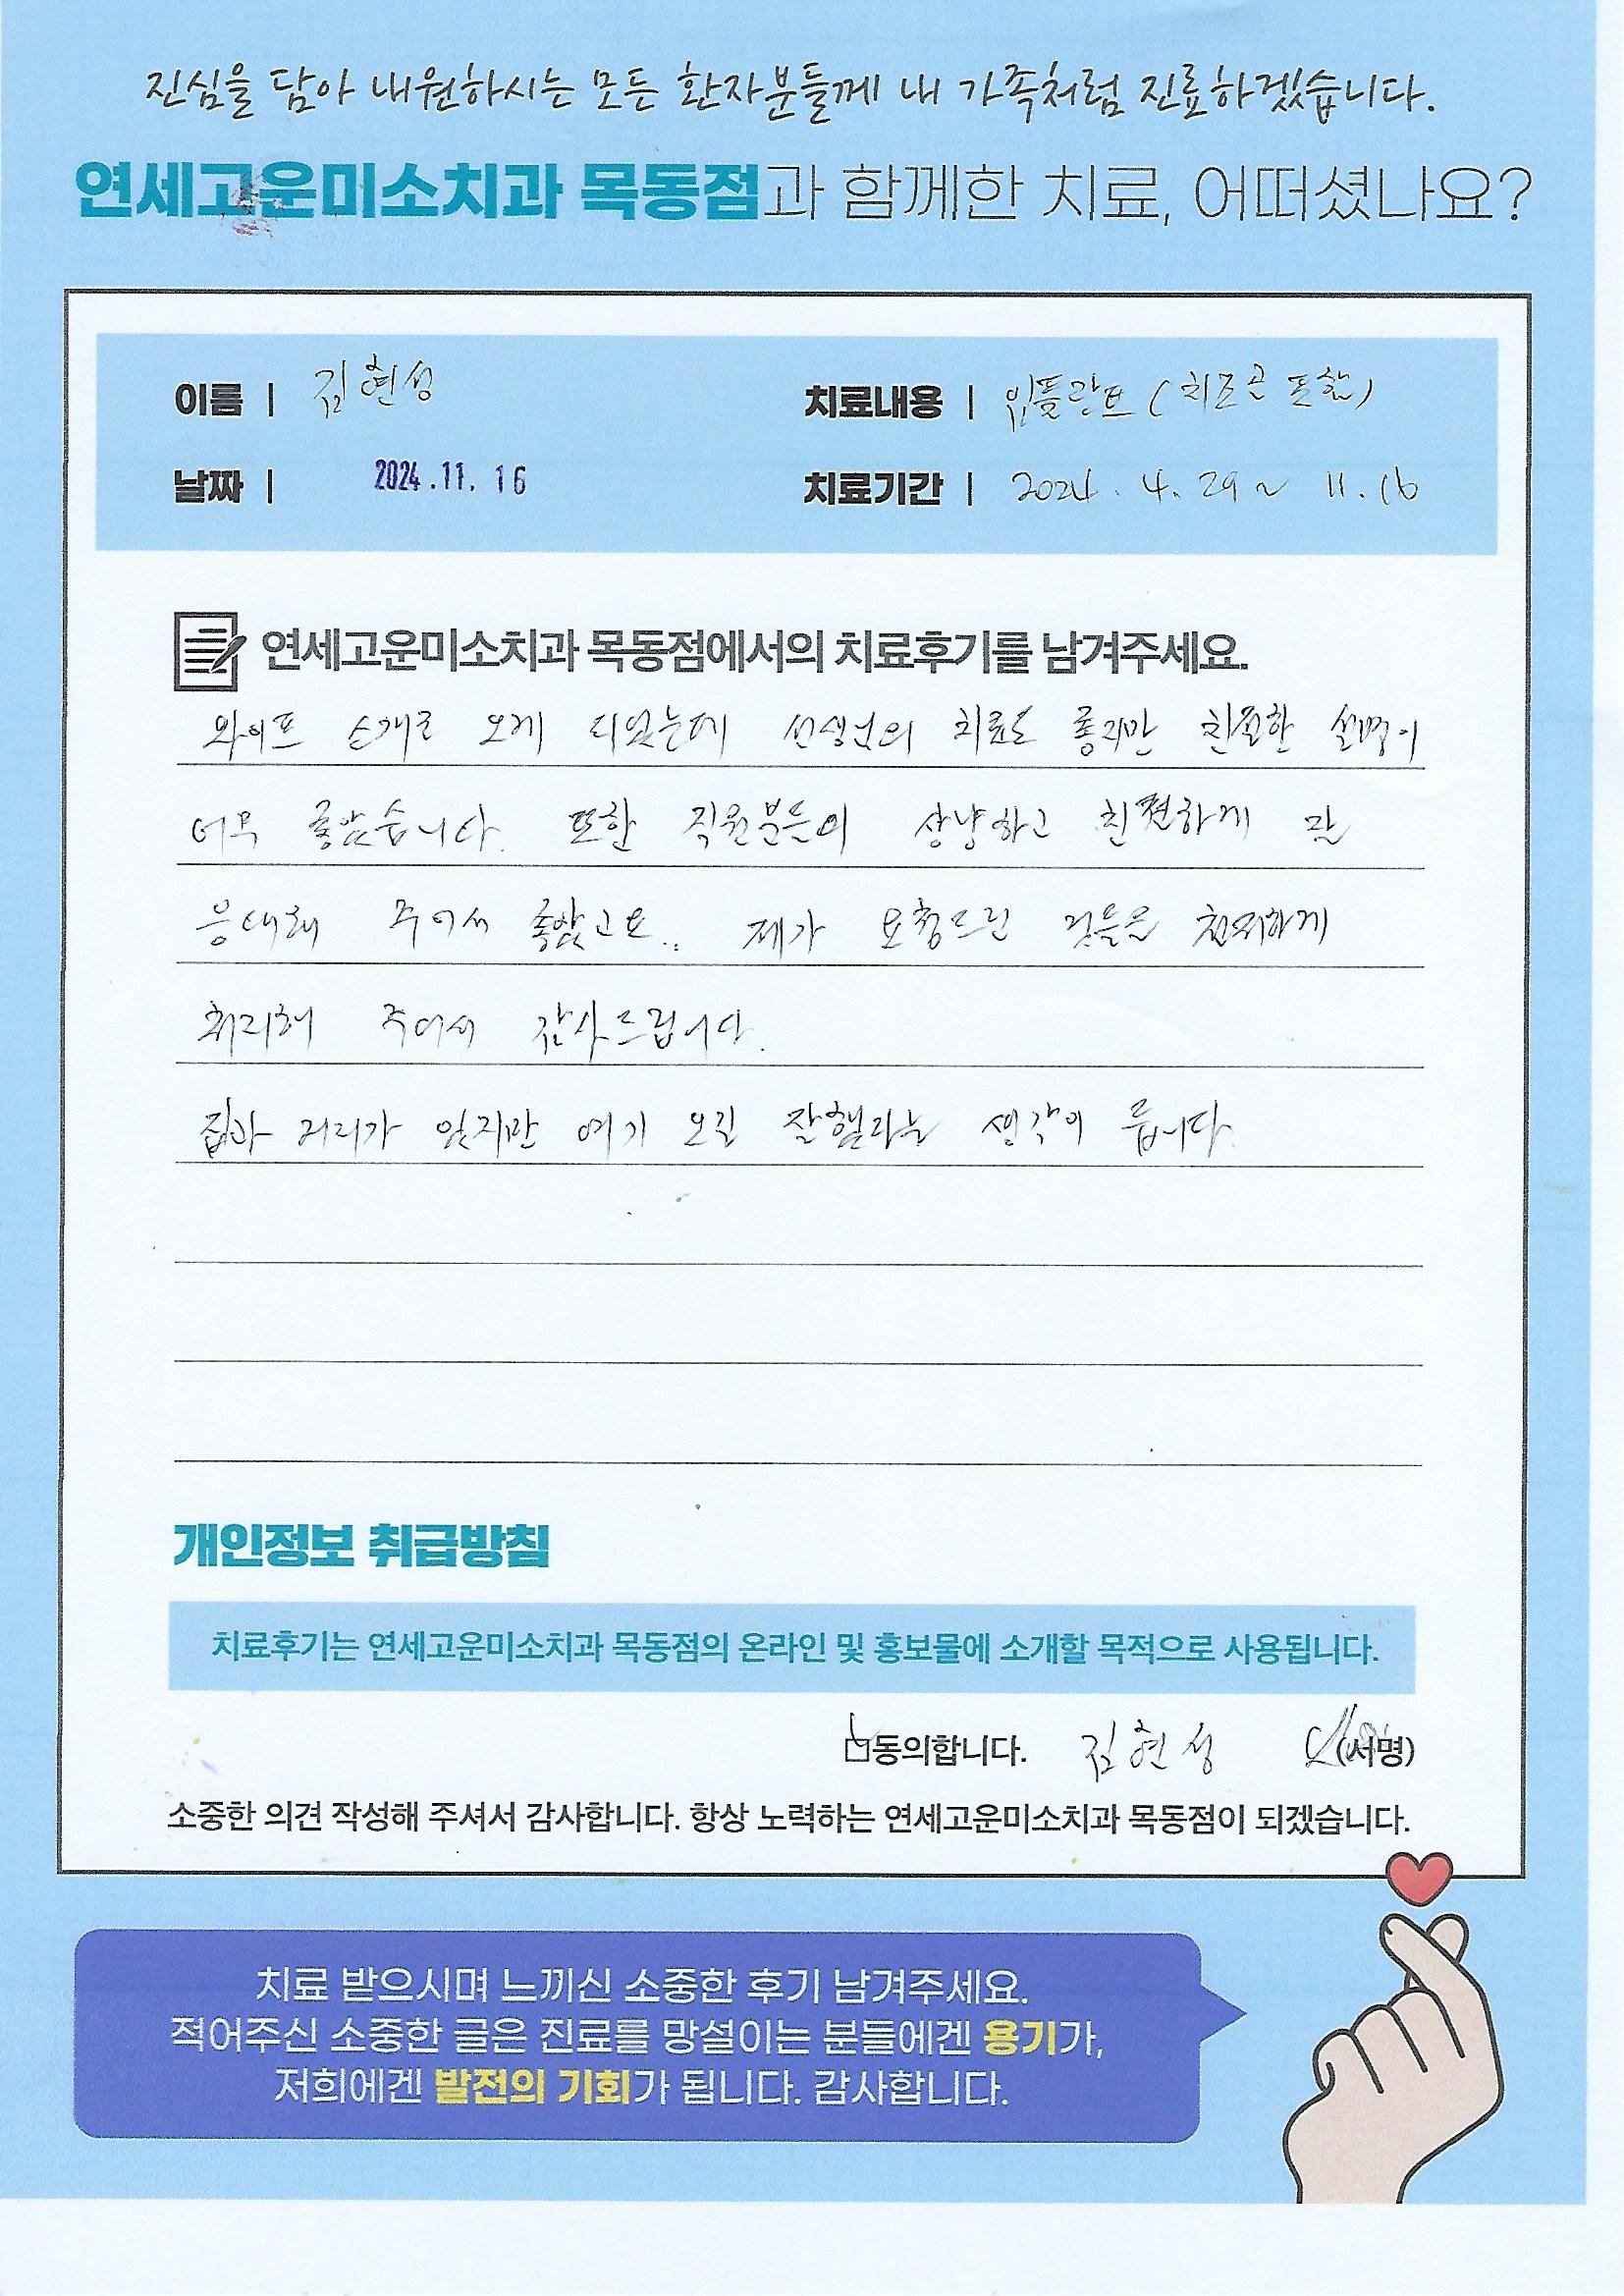 진심을 담아 내원하시는 모든 환자분들께 내 가족처럼 진료하겠습니다.
연세고운미소치과 목동점과 함께한 치료, 어떠셨나요?
이름 | 김현성
치료내용 | 임플란트 (치조골 포함)
날짜 | 2024.11.16
치료기간 | 2024. 4. 29 ~ 11. 16
연세고운미소치과 목동점에서의 치료후기를 남겨주세요.
와이프 소개로 오게 되었는데 선생님의 치료도 좋지만 친절한 설명이
너무 좋았습니다. 또한 직원분들이 상냥하고 친절하게 잘
응대해 주어서 좋았고요.. 제가 요청드린 것들을 친절하게
처리해 주어서 감사드립니다.
집과 거리가 있지만 여기 오길 잘했다는 생각이 듭니다.
개인정보 취급방침
치료후기는 연세고운미소치과 목동점의 온라인 및 홍보물에 소개할 목적으로 사용됩니다.
동의합니다. 김현성 (서명)
소중한 의견 작성해 주셔서 감사합니다. 항상 노력하는 연세고운미소치과 목동점이 되겠습니다.
치료 받으시며 느끼신 소중한 후기 남겨주세요.
적어주신 소중한 글은 진료를 망설이는 분들에겐 용기가,
저희에겐 발전의 기회가 됩니다. 감사합니다.